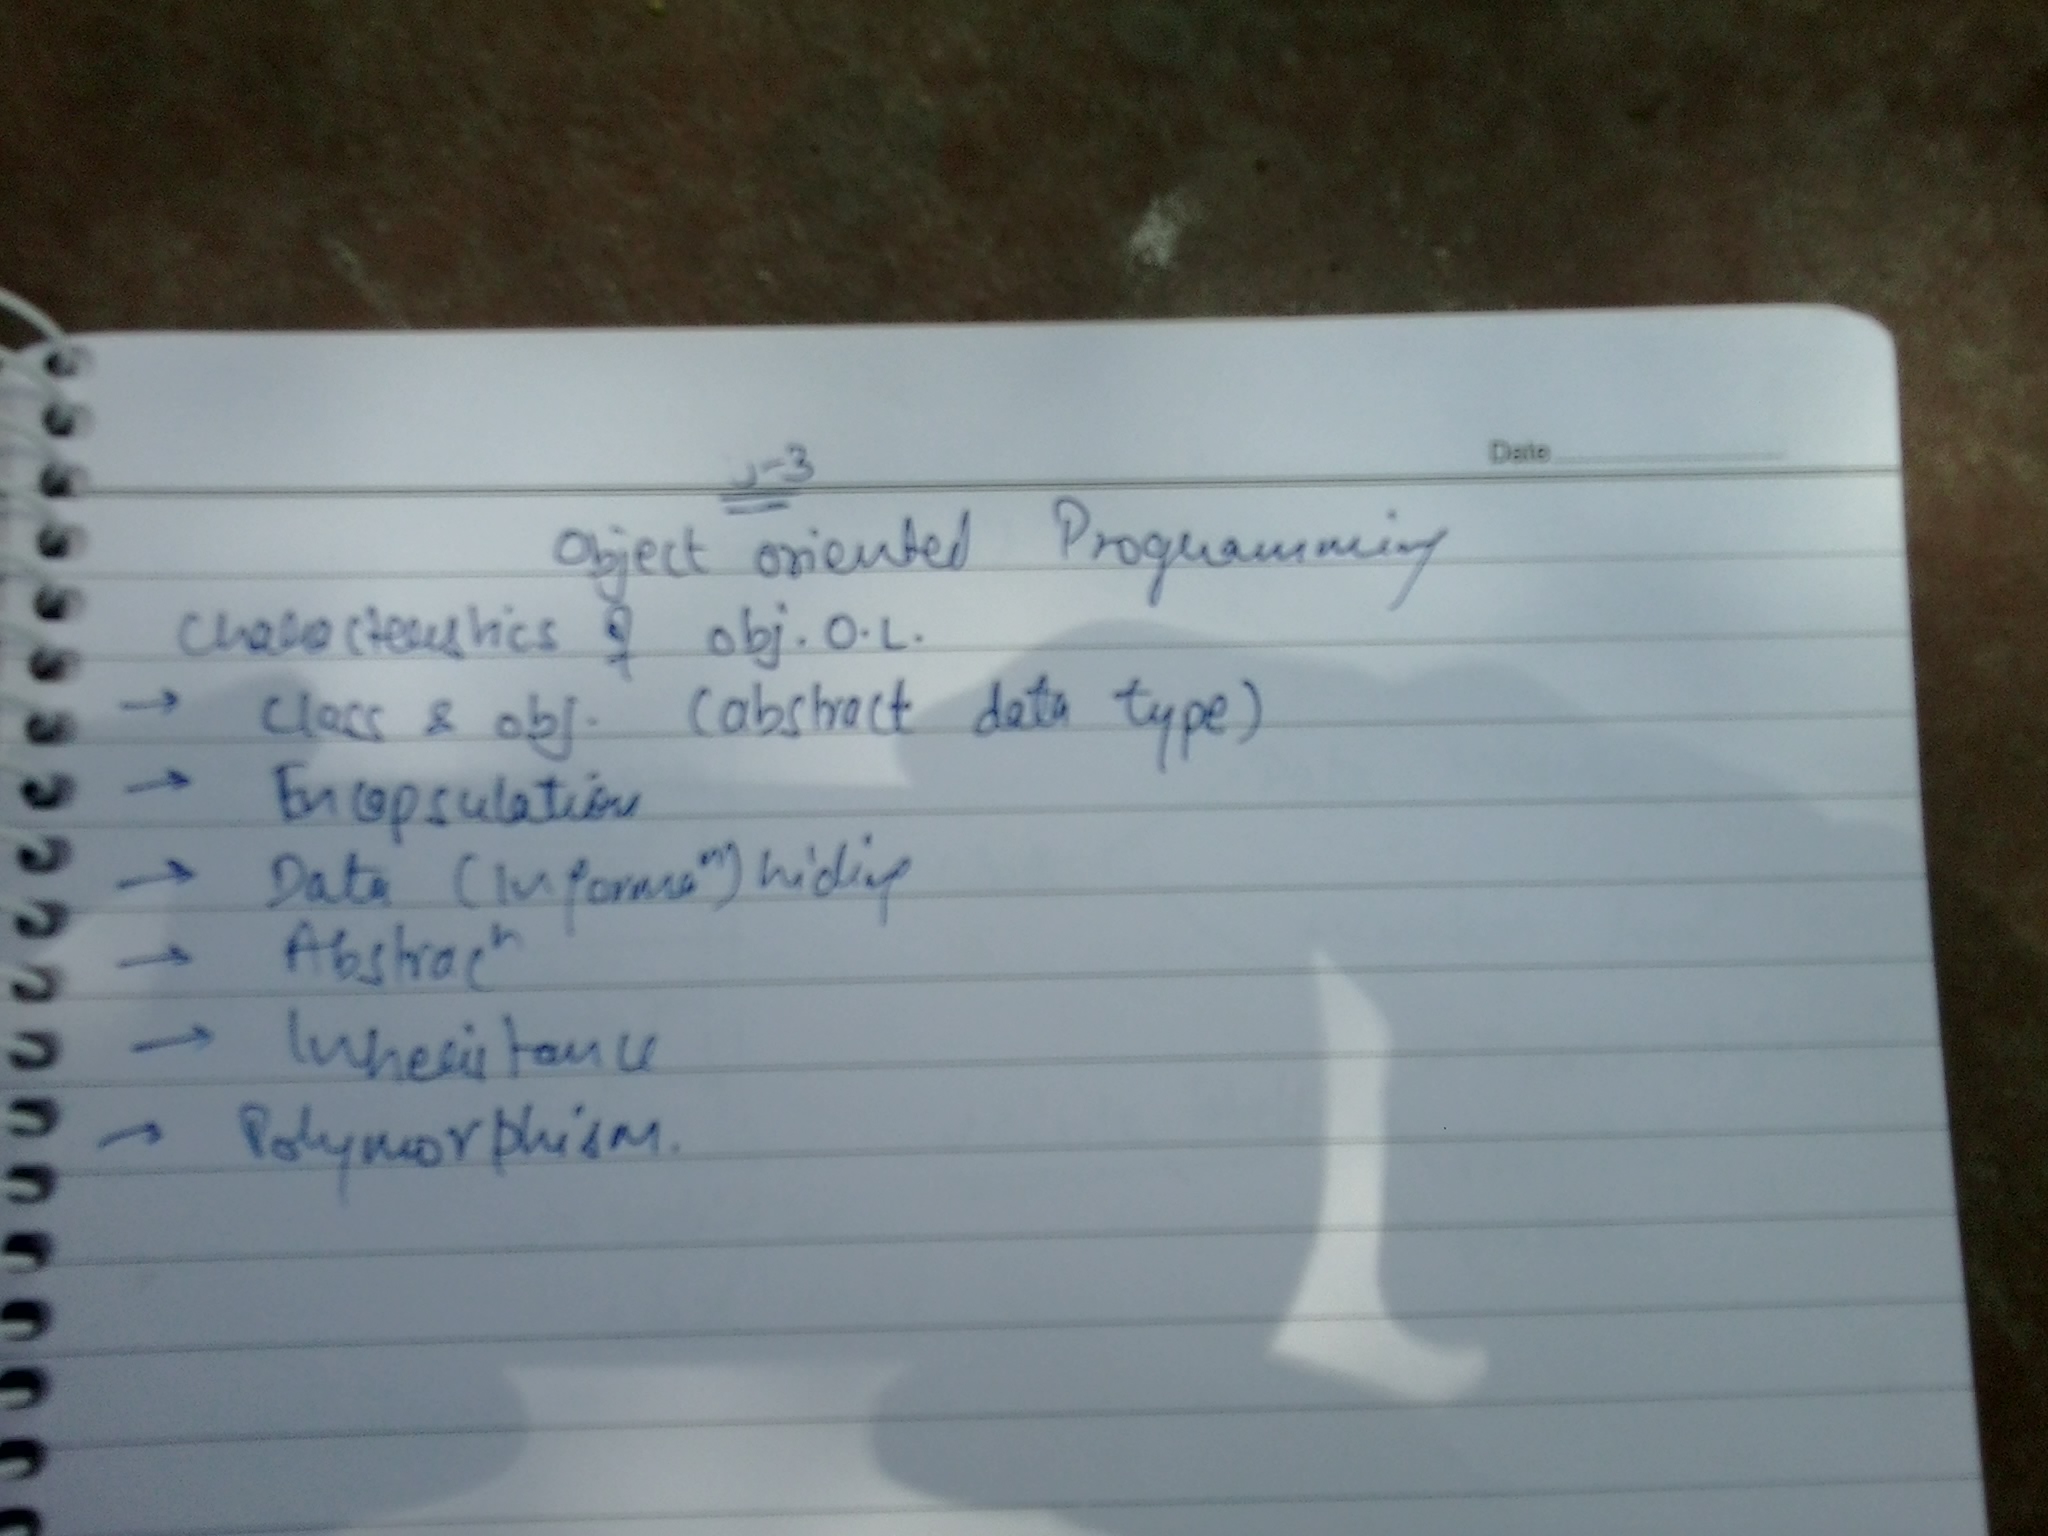 Date
U-3
Object oriented Programming
Characteristics of obj. O.L.
→ Class & obj. (abstract data type)
→ Encapsulation
→ Data (Informaⁿ) hiding
→ Abstracⁿ
→ Inheritance
→ Polymorphism.